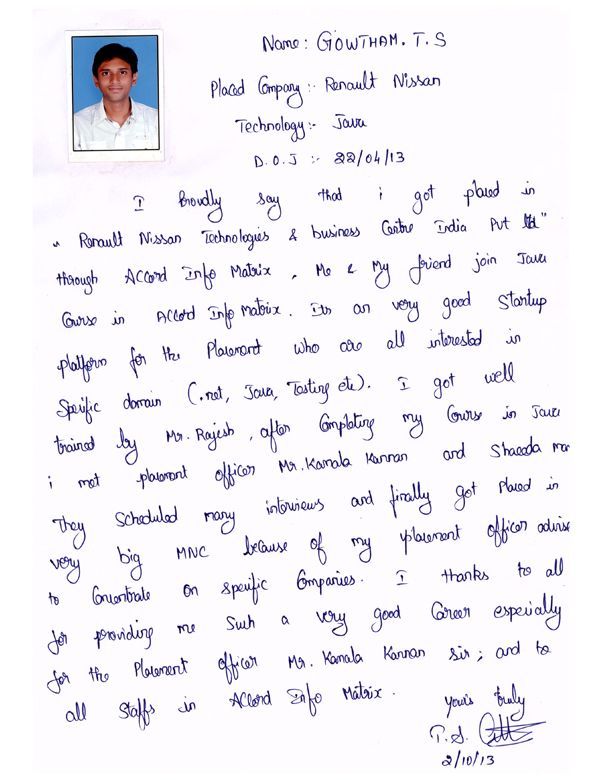 Name: GOWTHAM. T. S
Placed Company:- Renault Nissan
Technology:- Java
D.O.J :- 22/04/13
I Proudly say that i got placed in
" Renault Nissan Technologies & business Centre India Pvt Ltd"
through Accord Info Matrix, Me & My friend join Java
Course in Accord Info Matrix. Its an very good Startup
platform for the Placement who are all interested in
Specific domain (.net, Java, Testing etc). I got well
trained by Mr. Rajesh, after Completing my Course in Java
i met placement officer Mr. Kamala Kannan and Sharada
They Scheduled many interviews and finally got Placed in
very big MNC because of my placement officer advise
to Concentrate on Specific Companies. I thanks to all
for providing me Such a very good Career especially
for the Placement officer Mr. Kamala Kannan Sir; and to
all Staffs in Accord Info Matrix.
Your's truly
T. S.
2/10/13